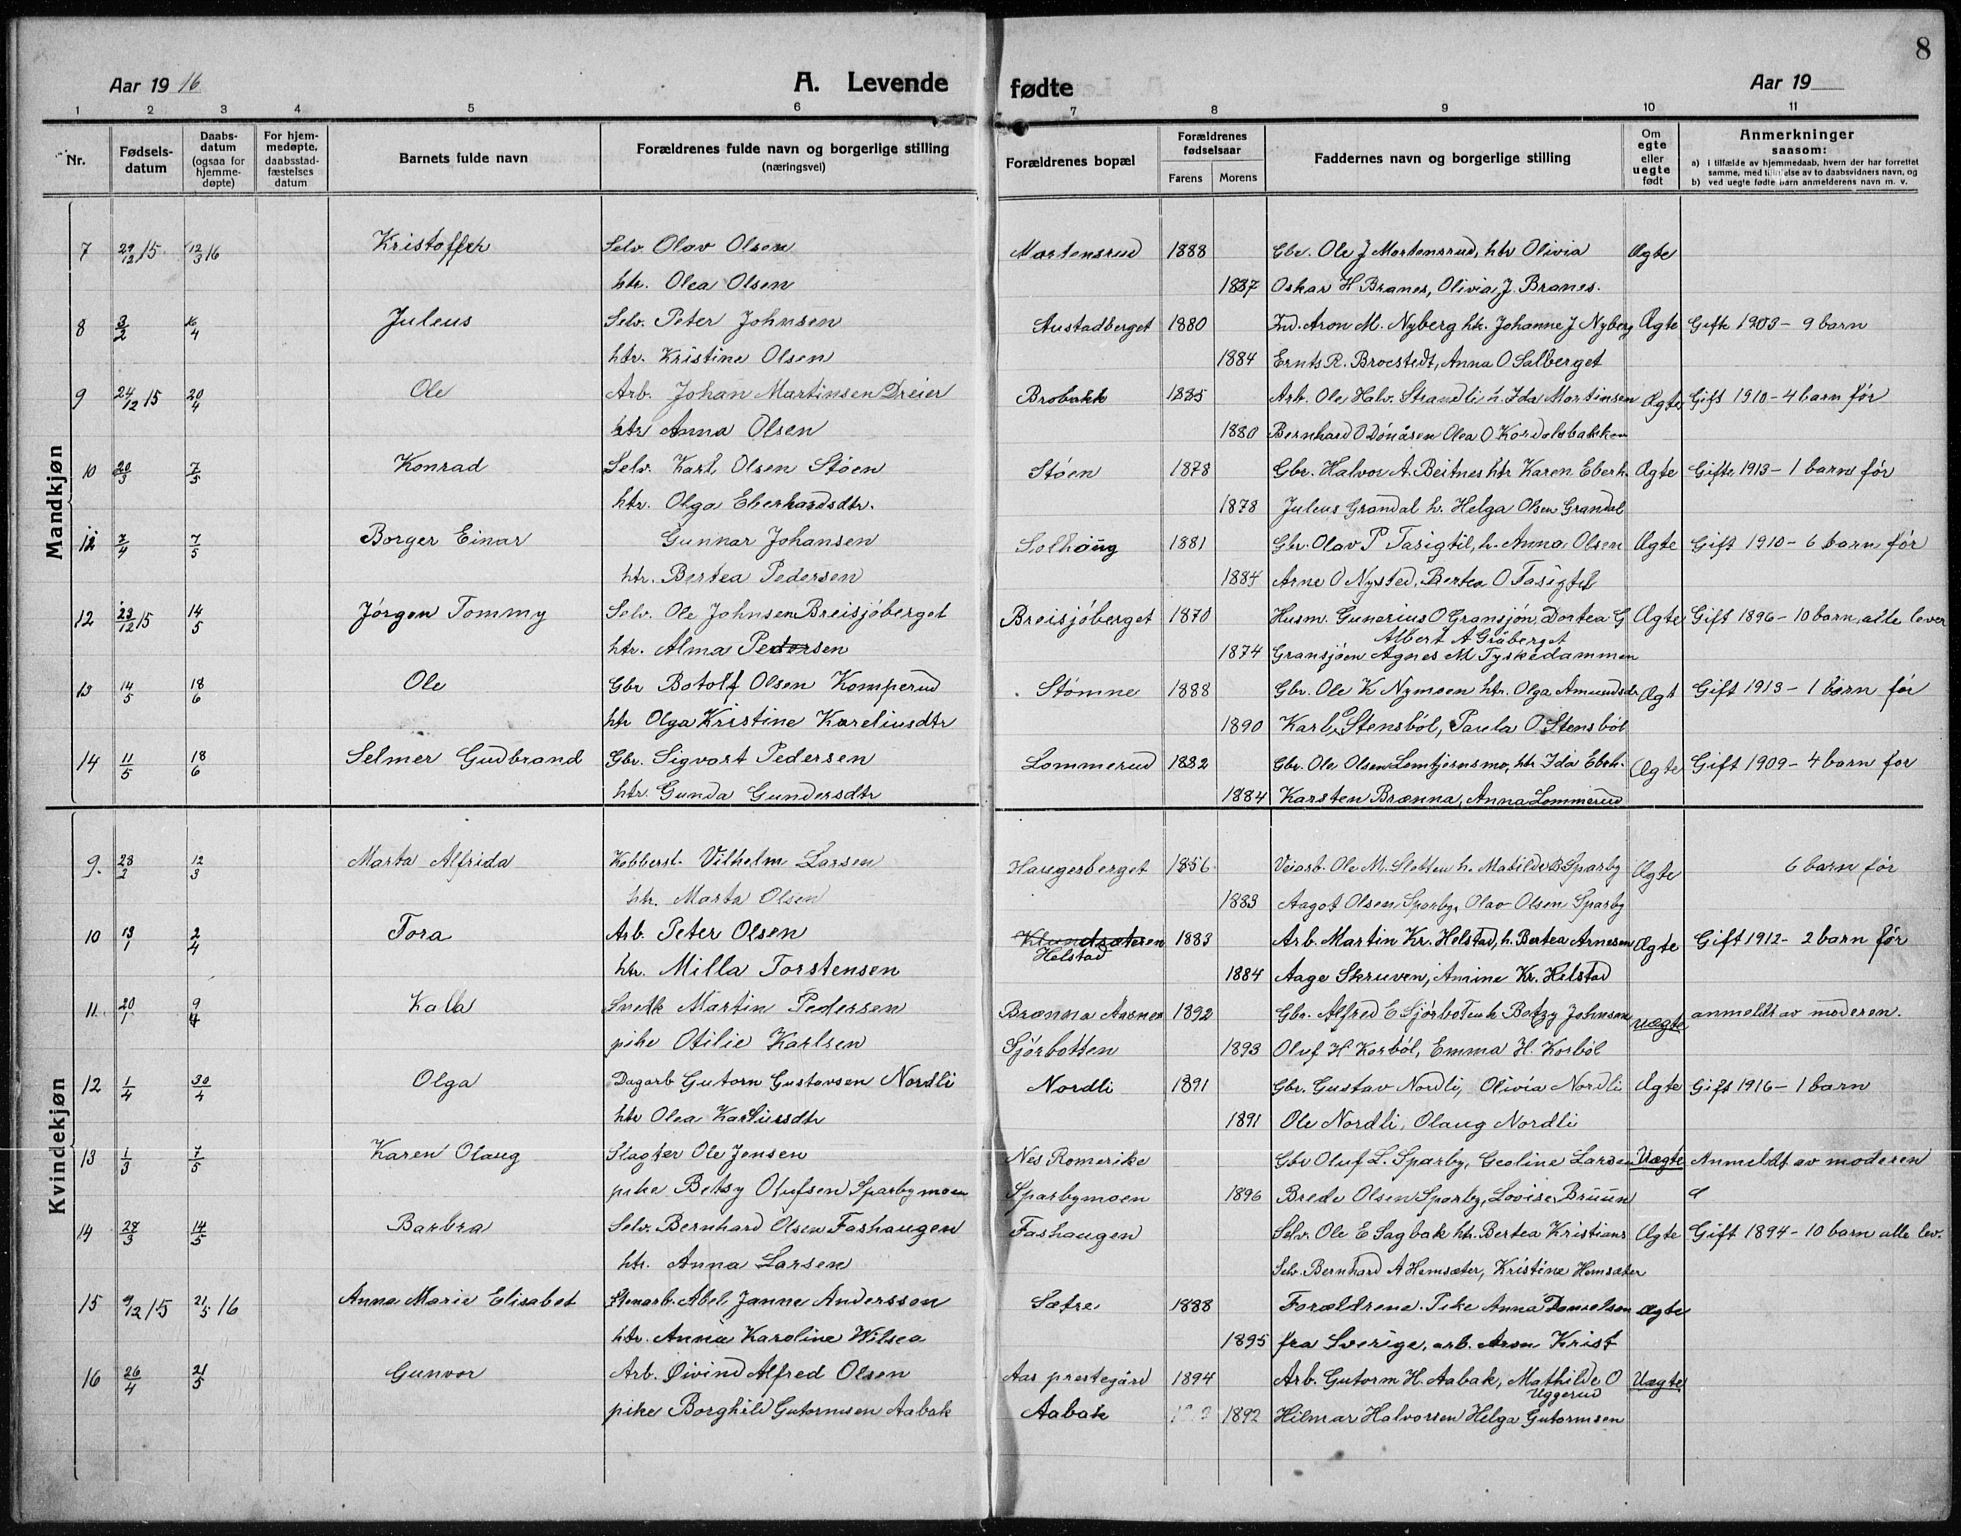 8
Aar 1916 A. Levende fødte Aar 19
1 2 3 4 5 6 7 8 9 10 11
Nr. Fødsels-datum Daabs-datum (ogsaa for hjemme-døpte) For hjem-medøpte, daabsstad-fæstelses datum Barnets fulde navn Forældrenes fulde navn og borgerlige stilling (næringsvei) Forældrenes bopæl Forældrenes fødselsaar Farens Morens Faddernes navn og borgerlige stilling Om egte eller uegte født Anmerkninger saasom: a) I tilfælde av hjemmedaab, hvem der har forrettet samme, med tilføielse av to daabsvidners navn, og b) ved uegte fødte barn anmelderens navn m. v.
Mandkjøn
7 29/12 15 12/3 16 Kristoffer Selv. Olav Olsen Mortensrud 1888 Gbr. Ole J Mortensrud, htr Olivia Ægte
htr. Olea Olsen 1887 Oskar H Branes, Olivia J. Branes.
8 3/2 16/4 Juleus Selv. Peter Johnsen Austadberget 1880 Ind. Aron M. Nyberg htr. Johanne J Nyberg Ægte Gifte 1903 - 9 barn
htr. Kristine Olsen 1884 Ernts R. Brocstedt, Anna O Salberget
9 24/12 15 20/4 Ole Arb. Johan Martinsen Dreier Brobakk 1885 Arb. Ole Halv. Strandli h. Ida Martinsen Ægte Gift 1910 - 4 barn før
htr Anna Olsen 1880 Bernhard O Dønåsen Olea O Kordolsbakken
10 20/3 7/5 Konrad Selv. Karl Olsen Støen Støen 1878 Gbr. Halvor A. Beitnes htr Karen Eberh. Ægte Gifte 1913 - 1 barn før
htr. Olga Eberhardsdtr. 1878 Juleus Grandal h. Helga Olsen Grandal
12 7/4 7/5 Borger Einar Gunnar Johansen Solhøug 1881 Gbr. Olav P Tasigtil, h. Anna Olsen Ægte Gift 1910 - 6 barn før
htr. Bertea Pedersen 1884 Arne O Nysted, Bertea O Tasigtil
12 23/12 15 14/5 Jørgen Tommy Selv. Ole Johnsen Breisjøberget Breisjøberget 1870 Husm. Gunerius O Gransjøn, Dortea G Ægte Gift 1896 - 10 barn, alle lever
Albert A Gråberget
htr. Alma Pedersen 1874 Gransjøen Agnes M Tyskedammen
13 14/5 18/6 Ole Gbr Botolf Olsen Komperud Stømne 1888 Gbr. Ole K Nymoen htr. Olga Amundsdr Ægt Gift 1913 - 1 barn før
htr Olga Kristine Kareliusdtr 1890 Karl O Stensbøl, Paula O Stensbøl
14 11/5 18/6 Selmer Gudbrand Gbr. Sigvart Pedersen Lommerud 1882 Gbr. Ole Olsen Lomtjernsmo, htr Ida Ebeh. Ægte Gift 1909 - 4 barn før
htr. Gunda Gundersdtr 1884 Karsten Brænna, Anna Lommerud
Kvindekjøn
9. 28/2 12/3 Marta Alfrida Kobberst. Vilhelm Larsen Haugerberget 1856 Veiarb. Ole M. Slotten h. Matilde B Sparby Ægte 6 barn før
htr. Marta Olsen 1883 Aagot Olsen Sparby, Olav Olsen Sparby
10 13/1 2/4 Tora Arb. Peter Olsen Klundsæteren 1883 Arb. Martin Kr. Helstad, h. Bertea Arnesen Ægte Gift 1912 - 2 barn før
Helstad
htr. Milla Torstensen 1884 Aage Skruven, Amine Kr. Helstad
11. 20/1 9/4 Kalla Snedk Martin Pedersen Brænna Aasnes 1892 Gbr. Alfred E Sjørboten h Betzy Johnsen uægte anmeldt av moderen.
pike Otilie Karlsen Sjørbotten 1893 Oluf H Korbøl, Emma H. Korbøl
12 1/4 30/4 Olga Dagarb Gutorn Gustavsen Nordli Nordli 1891 Gbr. Gustav Nordli, Olivia Nordli Ægte Gift 1916 - 1 barn
htr Olea Karliusdtr 1891 Ole Nordli, Olaug Nordli
13 1/3 7/5 Karen Olaug Slagter Ole Jensen Nes Romerike Gbr Oluf L. Sparby, Geoline Larsen Uægte Anmeldt av moderen
pike Betsy Olufsen Sparbymoen Sparbymoen 1896 Brede Olsen Sparby, Lovise Bruun
14 28/3 14/5 Barbra Selv. Bernhard Olsen Fashaugen Fashaugen Selv. Ole E Sagbak htr. Bertea Kristians Ægte Gift 1894 - 10 barn alle lev.
htr. Anna Larsen Selv. Bernhard A Hemsæter, Kristine Hemsæter
15 9/12 15 21/5 16 Anna Marie Elisabet Stenarb. Abel Janne Anderssen Sætre 1888 Forældrene. Pike Anna Danielsen ægte
htr. Anna Karoline Wilsen 1895 fra Sverige, arb. Aron Krist
16 26/4 21/5 Gunvor Arb. Øivind Alfred Olsen Aas prestegård 1894 Arb. Gutorm H. Aabak, Mathilde O Uggerud Uægte
pike Borghild Gutormsen Aabak Aabak 1892 Hilmar Halvorsen Helga Gutormsen